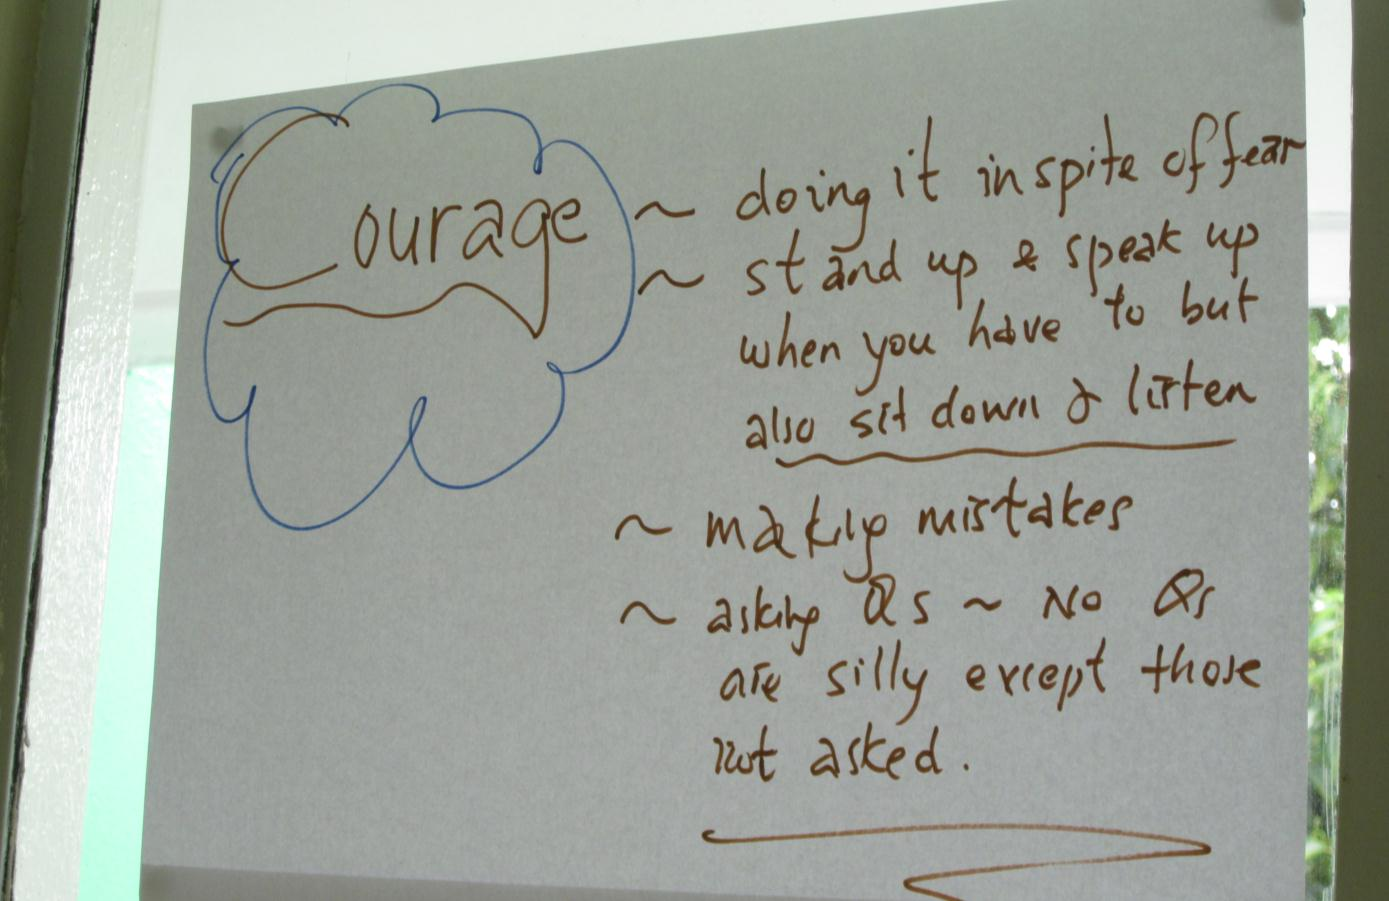 Courage
~ doing it inspite of fear
~ stand up & speak up
when you have to but
also sit down & listen
~ making mistakes
~ asking Qs ~ No Qs
are silly except those
not asked.